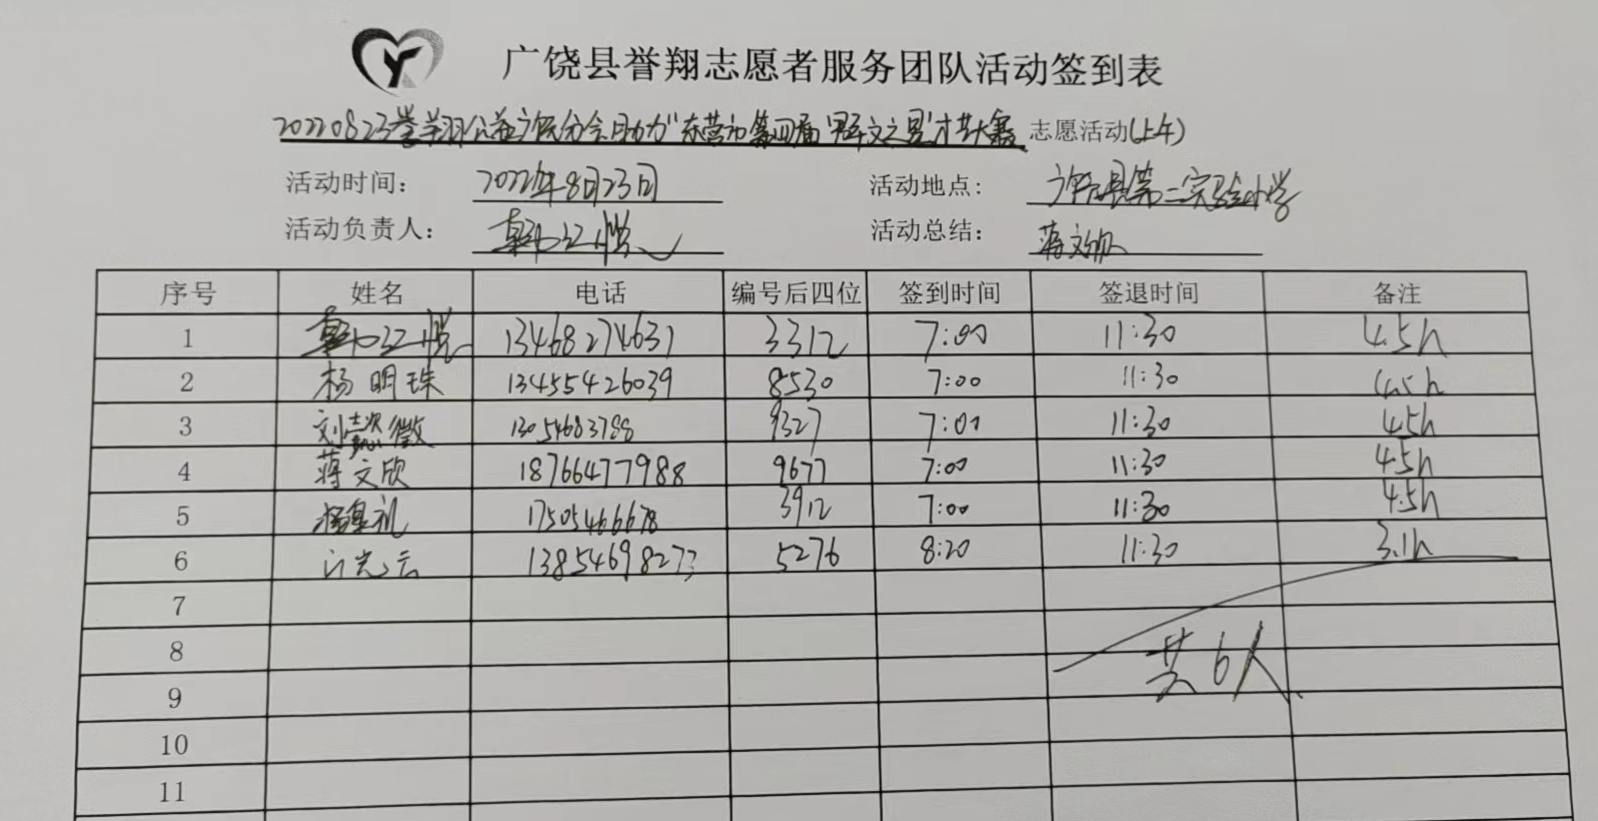 广饶县誉翔志愿者服务团队活动签到表
20220823誉翔公益广饶分会助力"东营市第四届'群文之星'才艺大赛 志愿活动(上午)
活动时间： 2022年8月23日 活动地点： 广饶县第二实验小学
活动负责人： 活动总结： 蒋文欣
序号 姓名 电话 编号后四位 签到时间 签退时间 备注
1 13468274631 3312 7:00 11:30 4.5h
2 杨明珠 13455426039 8530 7:00 11:30 4.5h
3 刘懿徵 13054683788 9327 7:00 11:30 4.5h
4 蒋文欣 18766477988 9677 7:00 11:30 4.5h
5 17505466678 3912 7:00 11:30 4.5h
6 13854698273 5276 8:20 11:30 3.1h
7
8 共6人
9
10
11